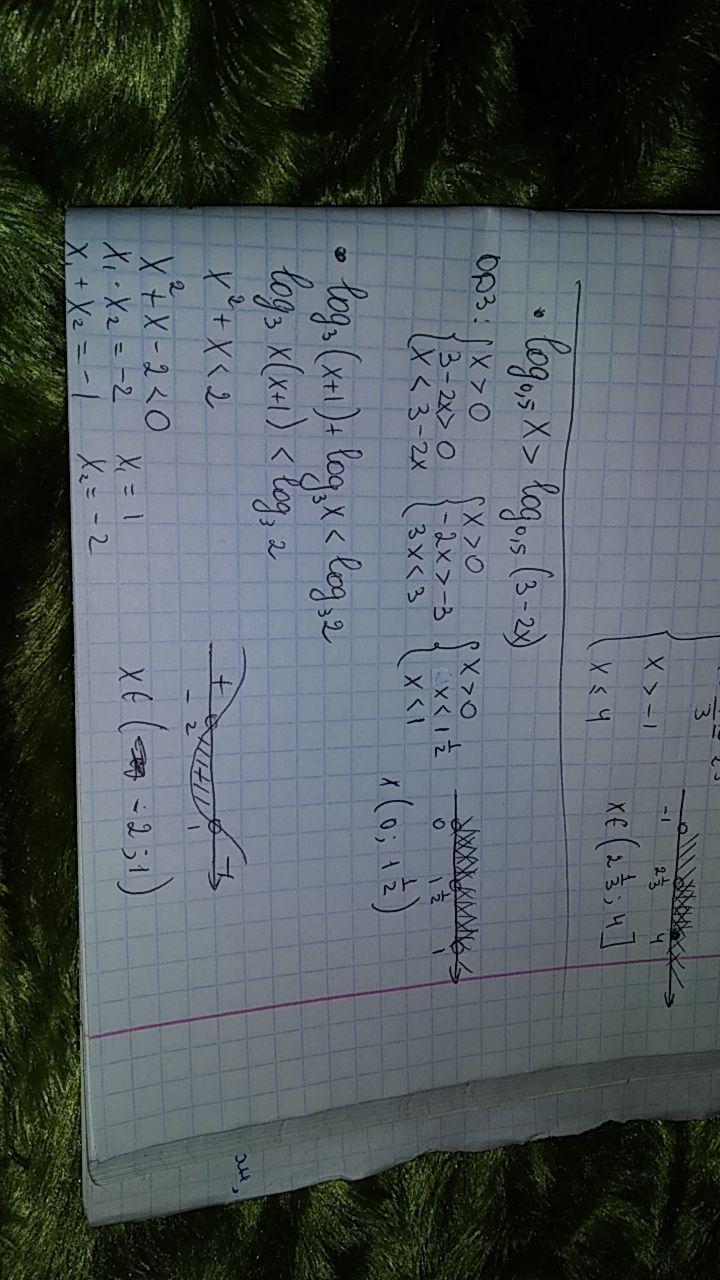 3
x > -1
x ≤ 4
-1 2 1/3 4
x ∈ (2 1/3; 4]
• log₀,₅ x > log₀,₅ (3-2x)
ОДЗ: { x > 0 { x > 0 { x > 0
{ 3-2x > 0 { -2x > -3 { x < 1 1/2
{ x < 3-2x { 3x < 3 { x < 1
0 1 1/2 1
x (0; 1 1/2)
• log₃ (x+1) + log₃ x < log₃ 2
log₃ x(x+1) < log₃ 2
x² + x < 2
x² + x - 2 < 0
x₁ · x₂ = -2 x₁ = 1
x₁ + x₂ = -1 x₂ = -2
+ -2 1
x ∈ ( -2; 1)